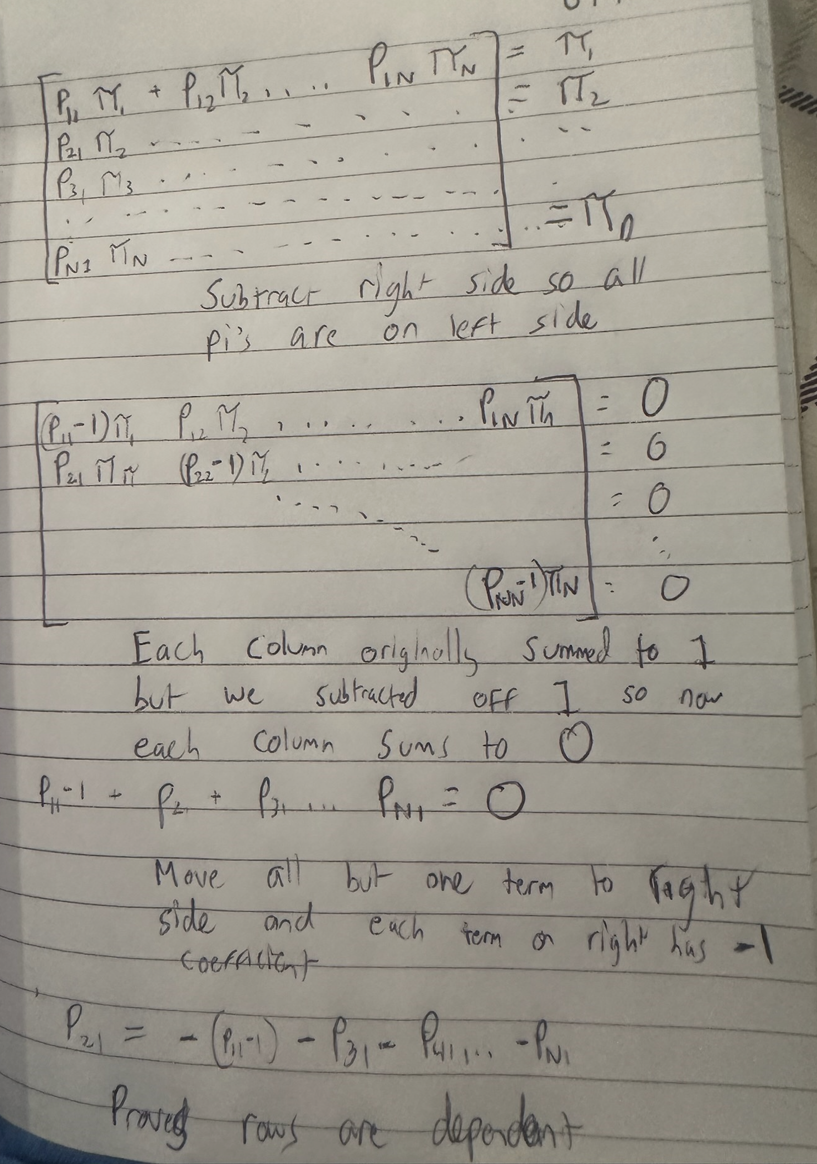 P₁₁ π₁ + P₁₂ π₂ .... P₁N πN = π₁
P₂₁ π₂ ........ = π₂
P₃₁ π₃ ........
........
PN1 πN ........ = πn
Subtract right side so all
pi's are on left side
(P₁₁-1)π₁ P₁₂ π₂ ........ P₁N πn = 0
P₂₁ π (P₂₂-1)π₂ ........ = 0
........ = 0
(PNN-1)πN = 0
Each column originally summed to 1
but we subtracted off 1 so now
each column sums to 0
P₁₁-1 + P₂ + P₃₁ ... PN1 = 0
Move all but one term to right
side and each term on right has -1
coefficient
P₂₁ = -(P₁₁-1) - P₃₁ - P₄₁,... -PN1
Proves rows are dependent